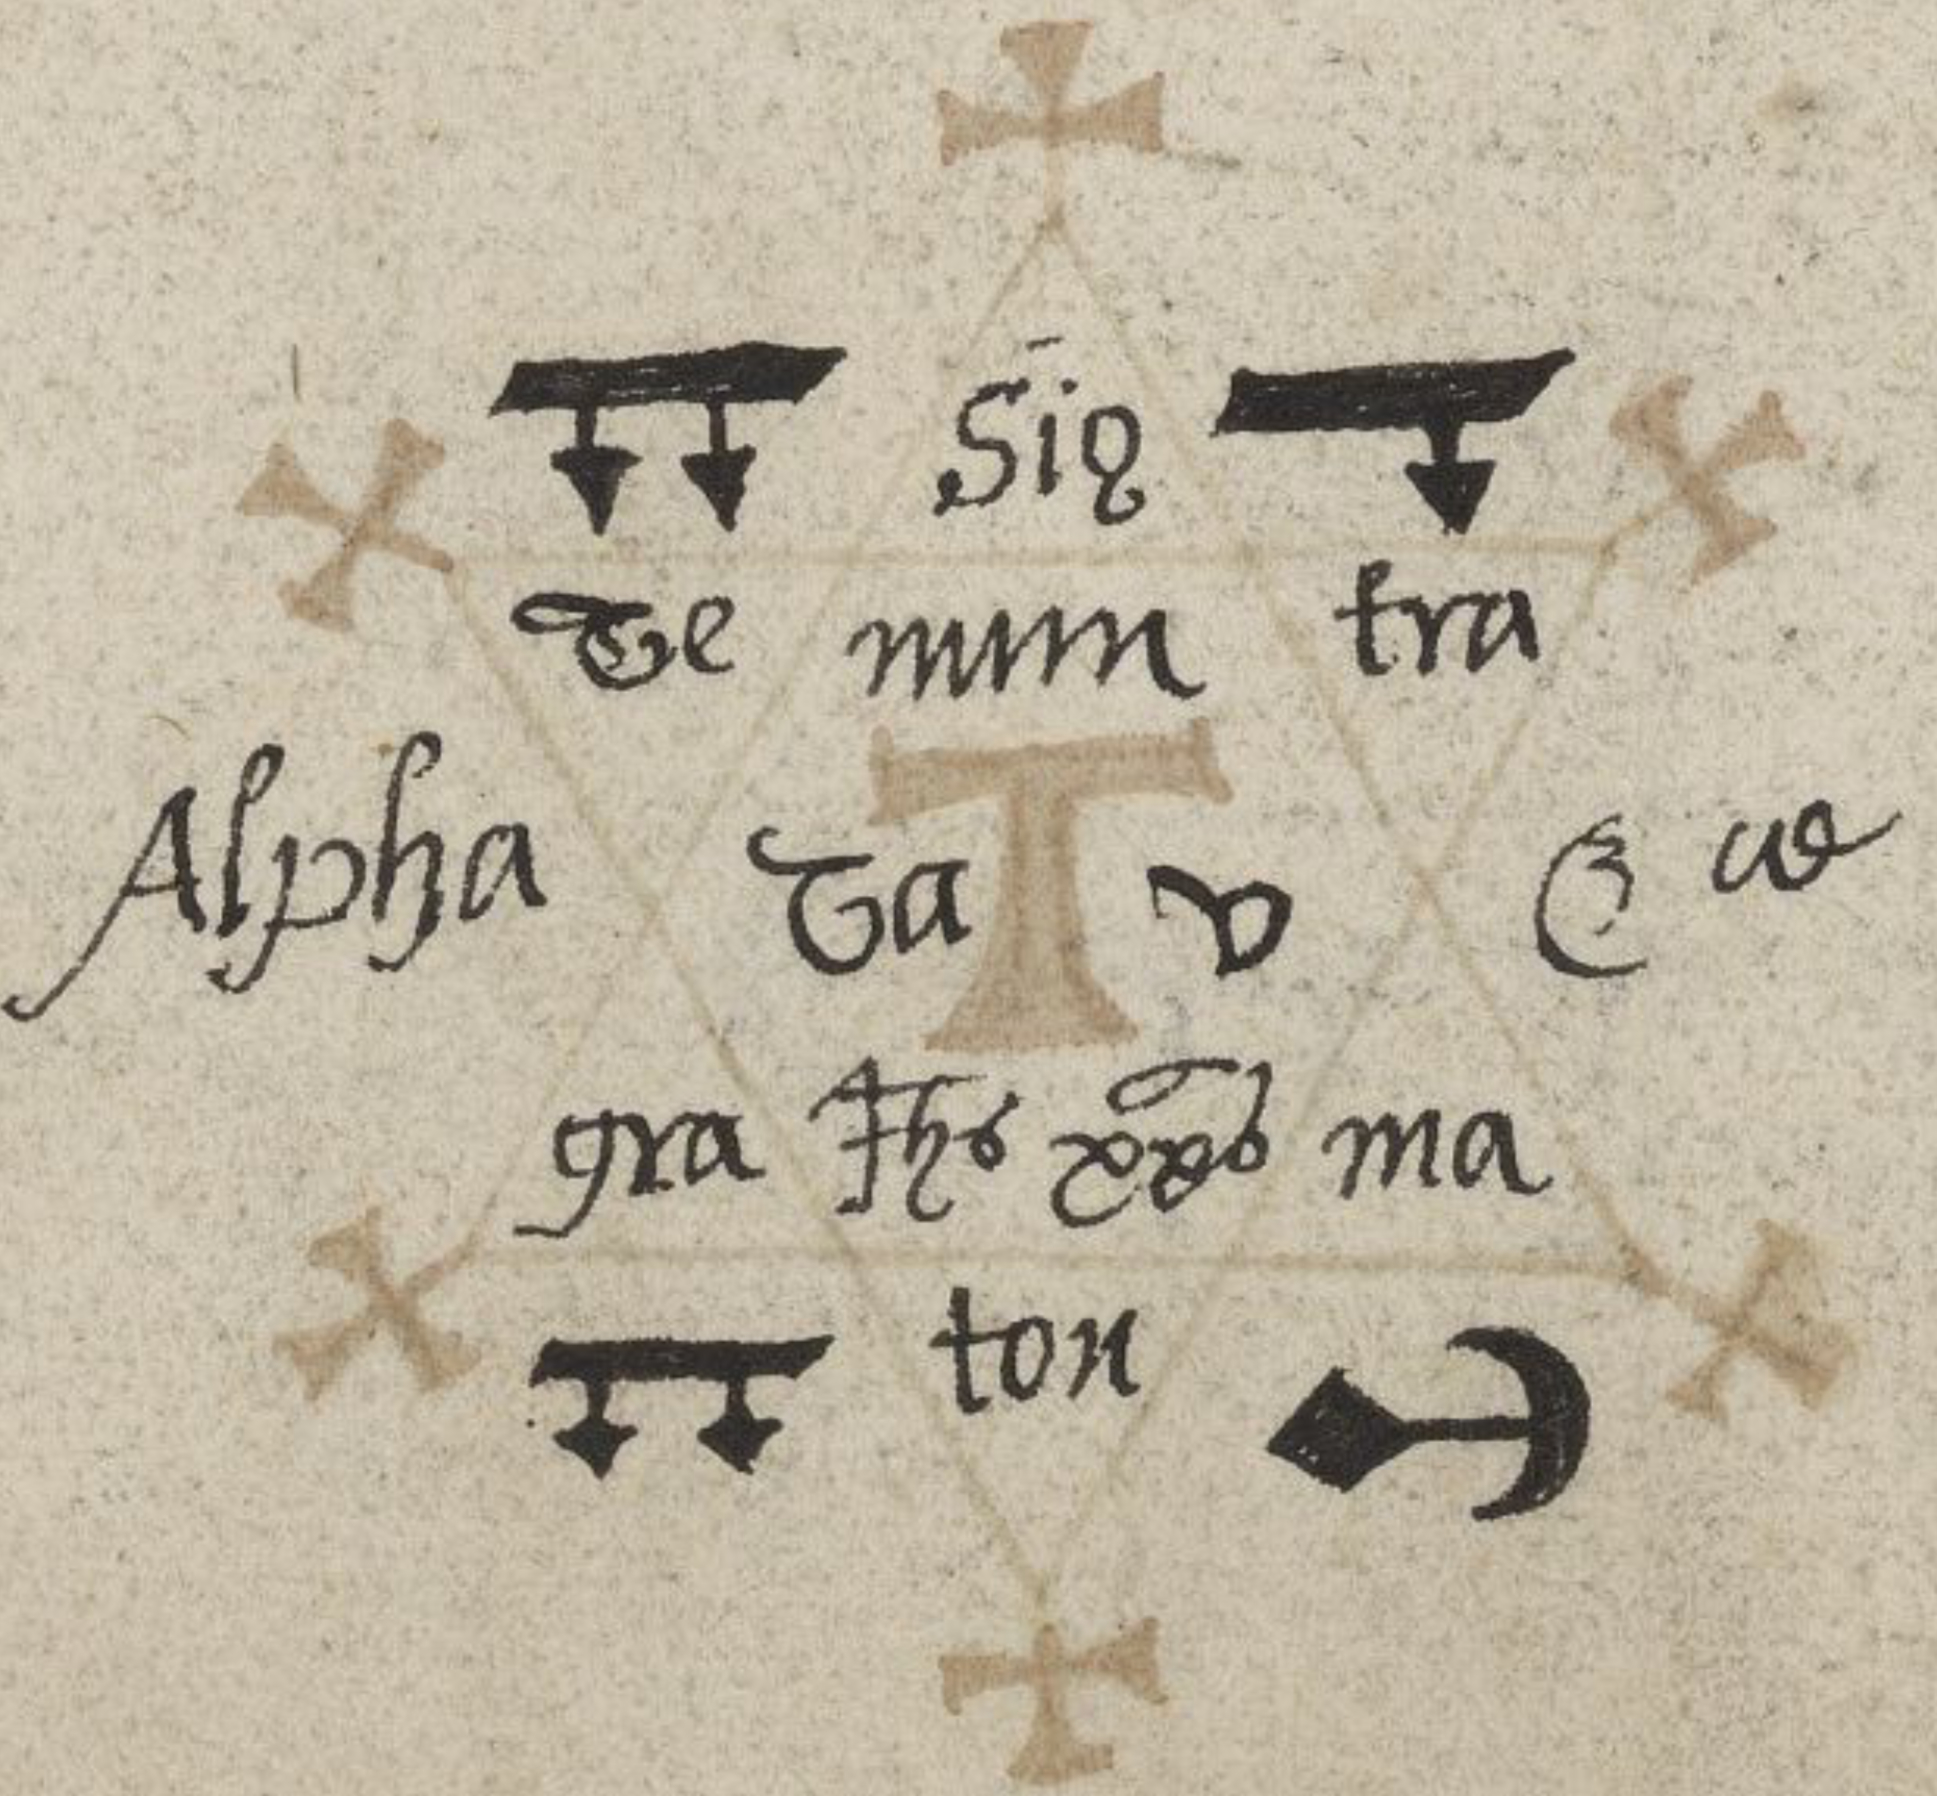 Sig
Te num tra
Alpha Ta T v & ω
gra Ihs xps ma
ton